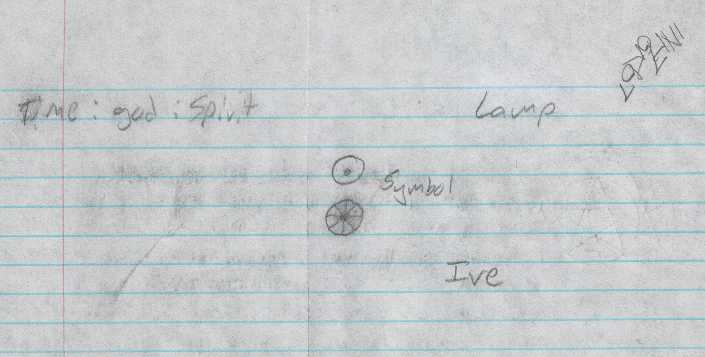 Time : god : Spirit
Lamp
Symbol
Ive